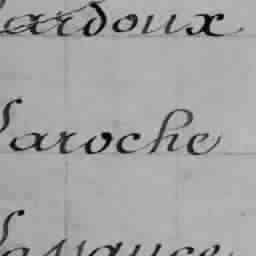 Lardoux
Laroche